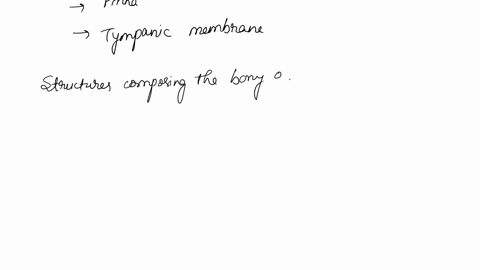 → Pinna
→ Tympanic membrane
Structures composing the bony o.